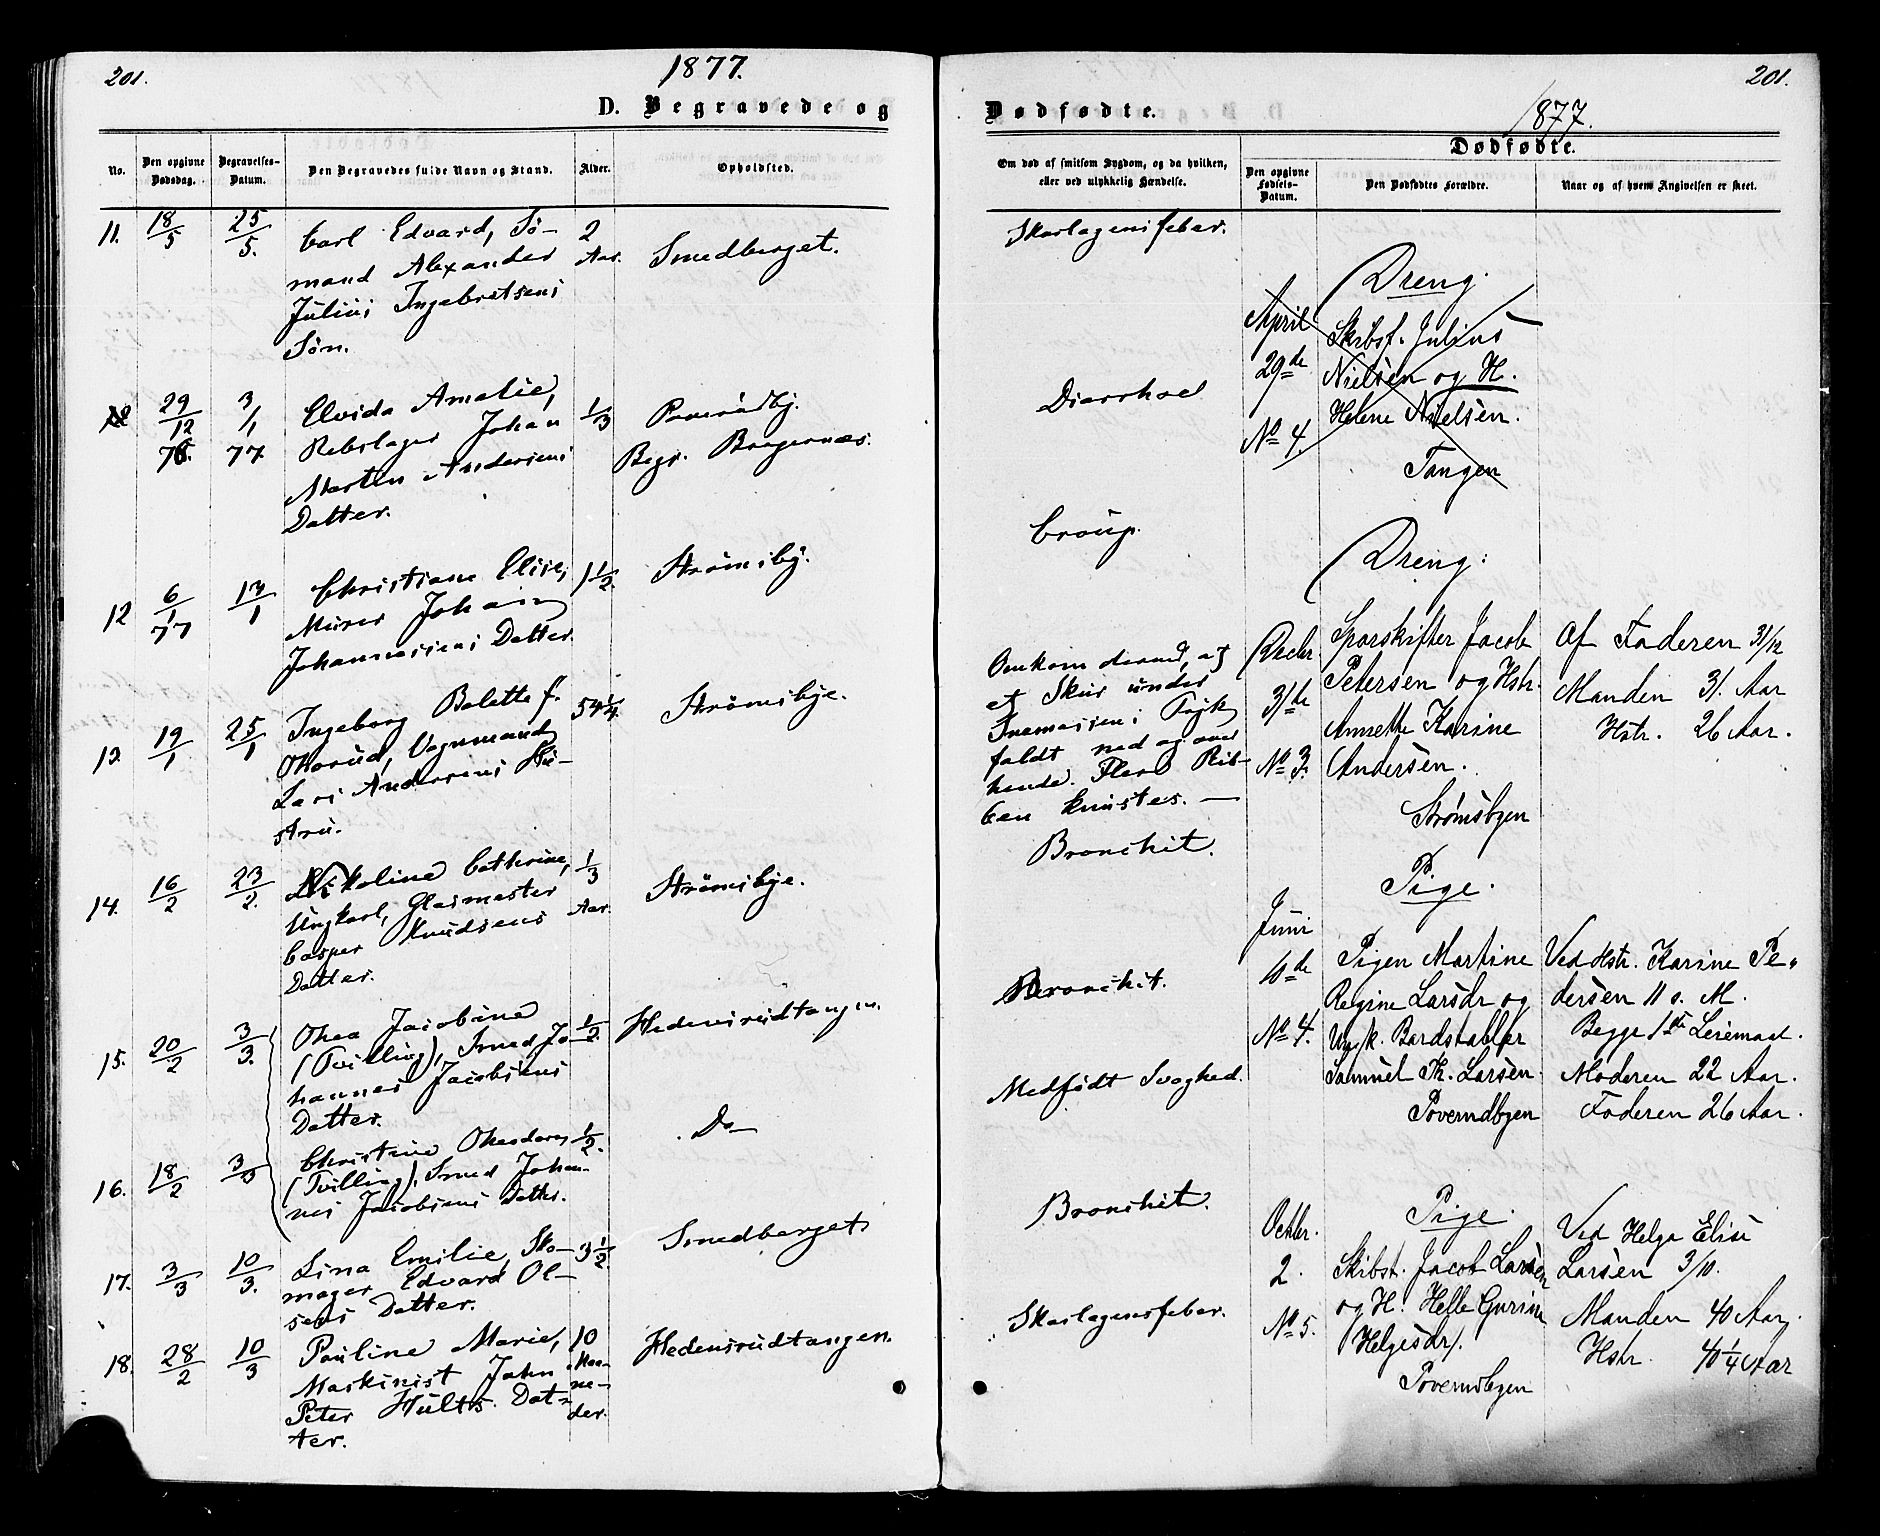 201.
1877.
D. Begravede og
No.
Den opgivne Dødsdag.
Begravelses-Datum.
Den Begravedes fulde Navn og Stand.
Alder.
Opholdsted.
11.
18/5
25/5.
Carl Edvard, Sø-
mand Alexander
Julius Ingebretsens
Søn.
2
Aar.
Smedberget.
29/12
76.
3/1
77.
Elvida Amalie,
Rebslager Johan
Morten Andersens
Datter.
1/3
Begr. Bragernæs.
12
6/1
77
13/1
Christiane Elise,
Murer Johan
Johannessens Datter.
1 1/2.
Strømsby.
13.
19/1
25/1
Ingeborg Bolette f.
Vognmand
Lars Andersens Hu-
stru.
54 1/4.
Strømsbye.
14.
16/2
23/2.
Nikoline Cathrine,
Ungkarl, Glasmester
Casper Knudsens
Datter.
1/3
Aar.
Strømsbye.
15.
20/2
3/3.
Othea Jacobine
(Tvilling), Smed Jo-
hannes Jacobsens
Datter.
1/2.
Hedensrudtangen.
16.
18/2
3/3
Christine
(Tvilling), Smed Johan-
nes Jacobsens Datter.
1/2.
Do
17.
3/3
10/3.
Lina Emilie, Sko-
mager Edvard Ol-
sens Datter.
3 1/2.
Smedberget
18.
28/2
10/3
Pauline Marie,
Maskinist John
Peter Hults Dat-
ter.
10
Maa-
ne-
der.
Hedensrudtangen.
201.
Dødfødte.
1877.
Om død af smitsom Sygdom, og da hvilken,
eller ved ulykkelig Hændelse.
Dødfødte.
Den opgivne Fødsels-Datum.
Den Dødfødtes Forældre.
Naar og af hvem Angivelsen er skeet.
Skarlagensfeber.
Diarrhoe
Croup.
Omkom derved, at
et Skur under
faldt ned og over
hende. Flere Rib-
ben knustes. —
Bronchit.
Bronchit.
Medfødt Svaghed.
Bronchit.
Skarlagensfeber.
Dreng.
April
29de
No 4.
Skibst. Julius
Nielsen og H.
Helene Nielsen.
Tangen
Dreng.
Decbr
31de
No 3.
Sporskifter Jacob
Petersen og Hstr.
Annette Karine
Andersen.
Strømsbyen
Af Faderen 31/12
Manden 31. Aar
Hstr. 26 Aar.
Pige.
Juni
No 4.
Pigen Martine
Regine Larsdr og
Ungk. Bordstabler
Samuel Th. Larsen.
Poverudbyen
Ved Hstr. Karine Pe-
dersen 11 s. M.
Begge 1ste Leiermaal.
Moderen 22 Aar.
Faderen 26 Aar.
Pige.
Octbr.
2.
No 5.
Skibst. Jacob Larsen
og H. Helle Gurine
Helgesdr.
Poverudbyen
Ved Helga Elise
Larsen 3/10.
Manden 40 Aar.
Hstr. 40 1/4 Aar